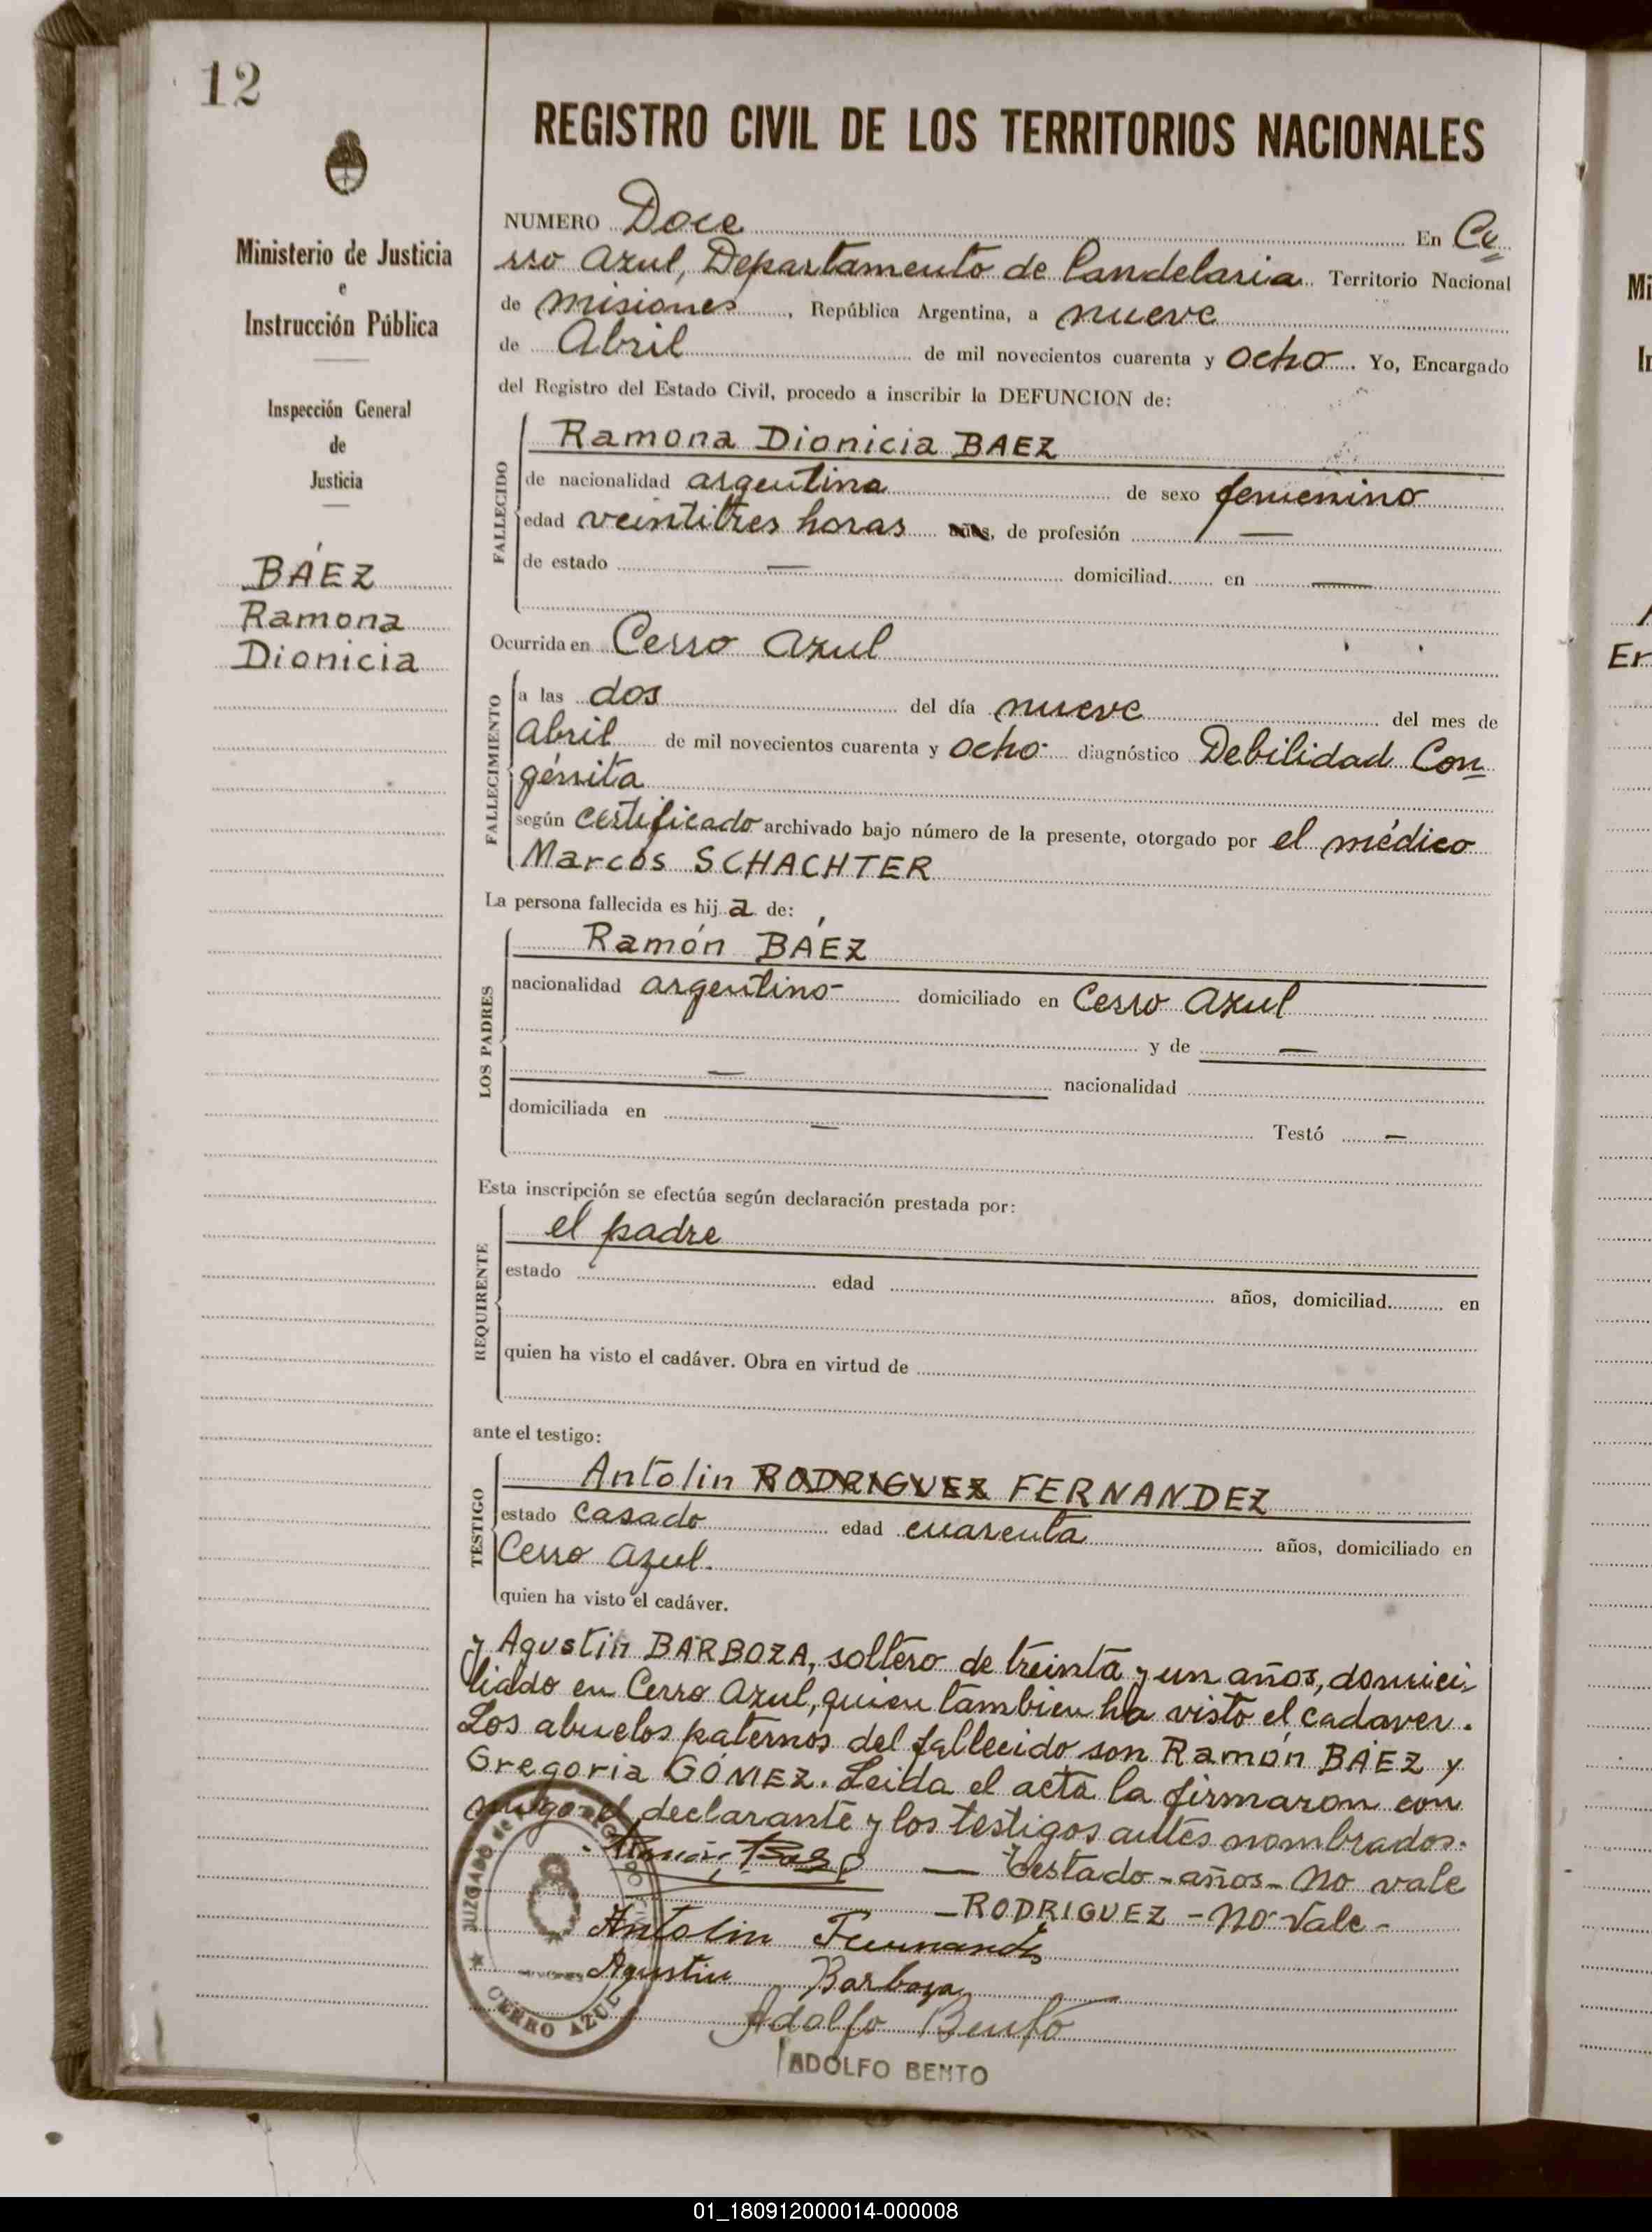 12
Ministerio de Justicia
e
Instrucción Pública
Inspección General
de
Justicia
BÁEZ
Ramona
Dionicia
REGISTRO CIVIL DE LOS TERRITORIOS NACIONALES
NUMERO Doce En Ce=
rro Azul, Departamento de Candelaria Territorio Nacional
de Misiones, República Argentina, a nueve
de Abril de mil novecientos cuarenta y ocho. Yo, Encargado
del Registro del Estado Civil, procedo a inscribir la DEFUNCION de:
FALLECIDO
Ramona Dionicia BAEZ
de nacionalidad argentina de sexo femenino
edad veintitres horas años, de profesión —
de estado — domiciliad en —
Ocurrida en Cerro Azul
FALLECIMIENTO
a las dos del día nueve del mes de
Abril de mil novecientos cuarenta y ocho diagnóstico Debilidad Con=
génita
según certificado archivado bajo número de la presente, otorgado por el médico
Marcos SCHACHTER
La persona fallecida es hija de:
LOS PADRES
Ramón BÁEZ
nacionalidad argentino domiciliado en Cerro Azul
y de —
— nacionalidad
domiciliada en — Testó —
Esta inscripción se efectúa según declaración prestada por:
REQUIRENTE
el padre
estado edad años, domiciliad en
quien ha visto el cadáver. Obra en virtud de
ante el testigo:
TESTIGO
Antolin RODRIGUEZ FERNANDEZ
estado casado edad cuarenta años, domiciliado en
Cerro Azul.
quien ha visto el cadáver.
y Agustin BARBOZA, soltero de treinta y un años, domici=
liado en Cerro Azul, quien tambien ha visto el cadaver.
Los abuelos paternos del fallecido son Ramón BÁEZ y
Gregoria GÓMEZ. Leida el acta la firmaron con
migo el declarante y los testigos antes nombrados.
Ramón Baez — Testado - años - No vale
- RODRIGUEZ - No Vale -
Antolin Fernandez
Agustin Barboza
Adolfo Bento
ADOLFO BENTO
JUZGADO de
CERRO AZUL
Er
01_180912000014-000008